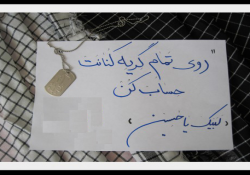 "روی تمام گریه کنانت
حساب کن
(لبیک یا حسین)